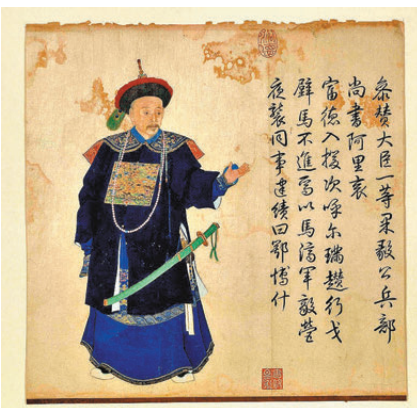 叅贊大臣一等果毅公兵部
尚書阿里衮
富德入援次呼尔璊趲行戈
壁馬不進爲以馬濟軍敵營
夜襲同事建績曰鄂博什